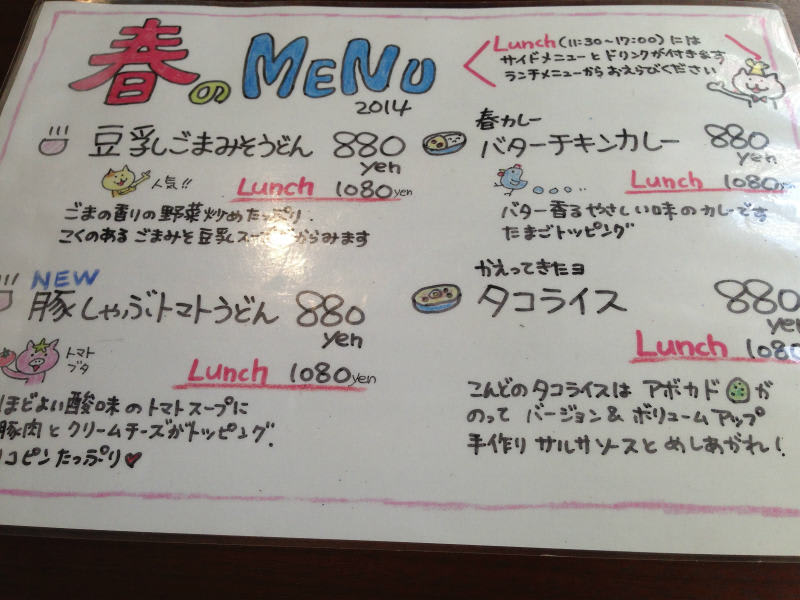 春のMENU
2014
Lunch(11:30~17:00)には
サイドメニューとドリンクが付きます
ランチメニューからおえらびください
豆乳ごまみそうどん 880
yen
人気!!
Lunch 1080yen
ごまの香りの野菜炒めたっぷり.
こくのあるごまみそ豆乳スー からみます
春カレー
バターチキンカレー 880
yen
Lunch 1080
バター香るやさしい味のカレーです
たまごトッピング
NEW
豚しゃぶトマトうどん 880
yen
トマト
ブタ
Lunch 1080yen
ほどよい酸味のトマトスープに
豚肉とクリームチーズがトッピング.
コピンたっぷり♥
かえってきたヨ
タコライス 880
yen
Lunch 1080
こんどのタコライスは アボカドが
のって バージョン&ボリュームアップ
手作りサルサソースとめしあがれ!